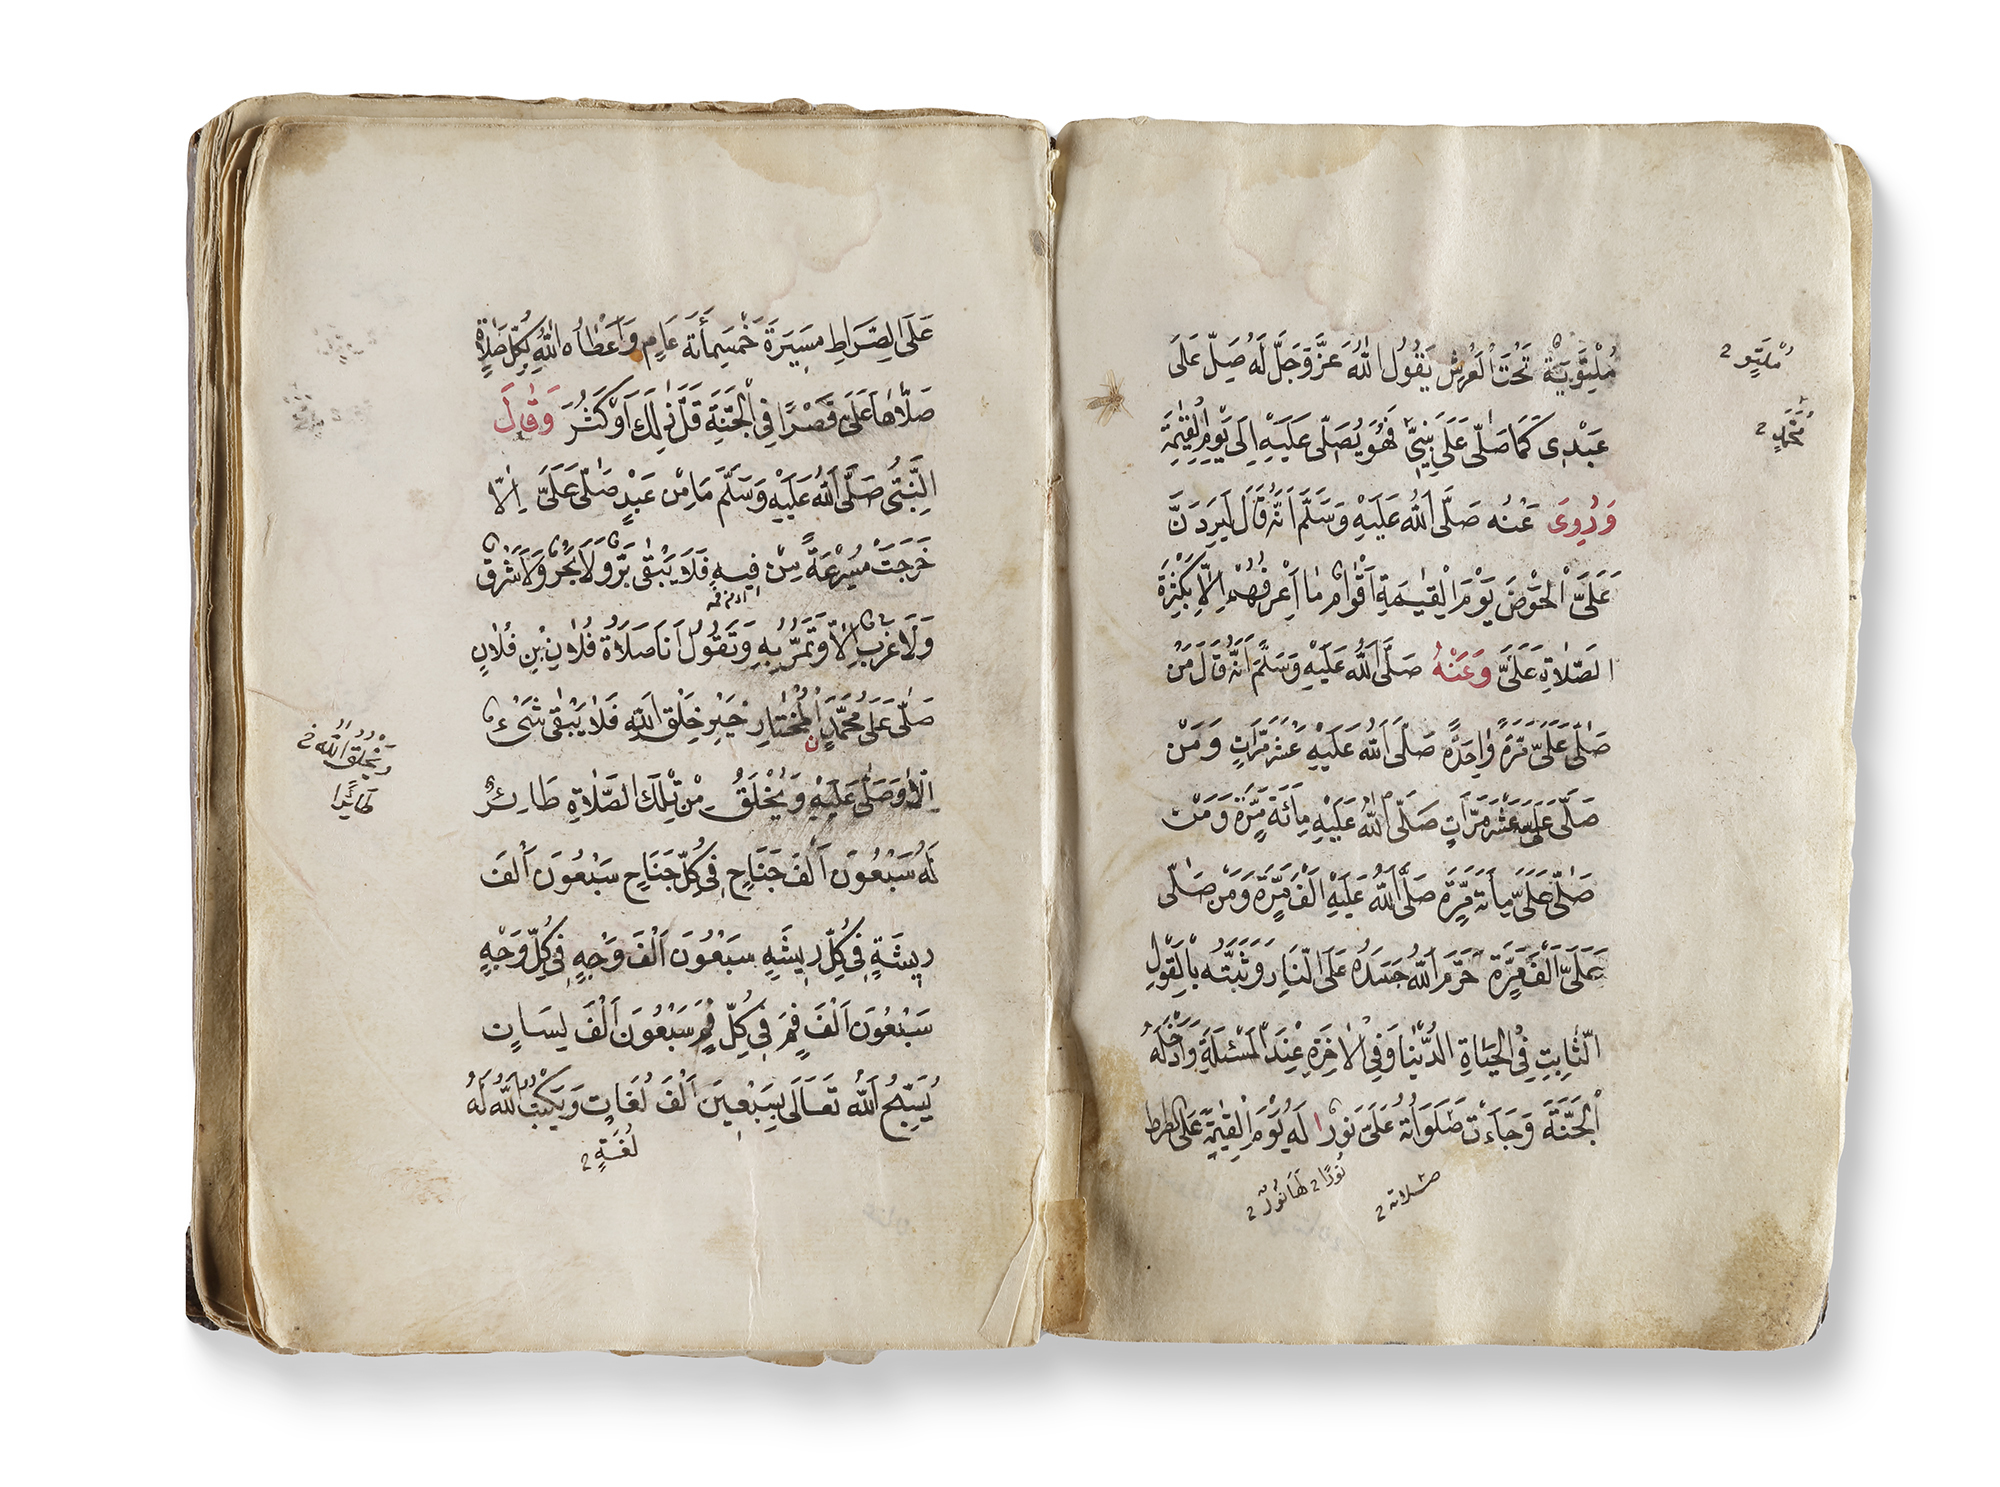 مُلْتَوِيَةٌ تَحْتَ الْعَرْشِ يَقُولُ اللّٰهُ عَزَّ وَجَلَّ لَهُ صَلِّ عَلَى
عَبْدِى كَمَا صَلّٰى عَلَى نَبِيِّ فَهُوَ يُصَلّٰى عَلَيْهِ اِلَى يَوْمِ الْقِيٰمَةِ
وَرُوِىَ عَنْهُ صَلَّى اللّٰهُ عَلَيْهِ وَسَلَّمَ اَنَّهُ قَالَ لَيَرِدَنَّ
عَلَىَّ الْحَوْضَ يَوْمَ الْقِيٰمَةِ اَقْوَامٌ مَا اَعْرِفُهُمْ اِلَّا بِكَثْرَةِ
الصَّلَاةِ عَلَىَّ وَعَنْهُ صَلَّى اللّٰهُ عَلَيْهِ وَسَلَّمَ اَنَّهُ قَالَ مَنْ
صَلّٰى عَلَىَّ مَرَّةً وَاحِدَةً صَلَّى اللّٰهُ عَلَيْهِ عَشْرَ مَرَّاتٍ وَمَنْ
صَلّٰى عَلَىَّ عَشْرَ مَرَّاتٍ صَلَّى اللّٰهُ عَلَيْهِ مِائَةَ مَرَّةٍ وَمَنْ
صَلّٰى عَلَىَّ مِأَةَ مَرَّةٍ صَلَّى اللّٰهُ عَلَيْهِ اَلْفَ مَرَّةٍ وَمَنْ صَلّٰى
عَلَىَّ اَلْفَ مَرَّةٍ حَرَّمَ اللّٰهُ جَسَدَهُ عَلَى النَّارِ وَثَبَّتَهُ بِالْقَوْلِ
الثَّابِتِ فِى الْحَيَاةِ الدُّنْيَا وَفِى الْاٰخِرَةِ عِنْدَ الْمَسْئَلَةِ وَاَدْخَلَهُ
الْجَنَّةَ وَجَاءَتْ صَلَوَاتُهُ عَلَىَّ نُورٌ ا لَهُ يَوْمَ الْقِيٰمَةِ عَلَى الصراط
نُورًا 2 لَهَا نُورٌ 2
صلاته 2
مُحَمَّدٍ 2
عَلَى الصِّرَاطِ مَسِيرَةَ خَمْسِمِأَةِ عَامٍ وَاَعْطَاهُ اللّٰهُ بِكُلِّ صَلَاةٍ
صَلَّاهَا عَلَىَّ قَصْرًا فِى الْجَنَّةِ قَلَّ ذٰلِكَ اَوْ كَثُرَ وَقَالَ
النَّبِىُّ صَلَّى اللّٰهُ عَلَيْهِ وَسَلَّمَ مَا مِنْ عَبْدٍ صَلّٰى عَلَىَّ اِلَّا
خَرَجَتْ مُسْرِعَةً مِنْ فِيهِ فَلَا يَبْقٰى بَرٌّ وَلَا بَحْرٌ وَلَا شَرْقٌ
وَلَا غَرْبٌ اِلَّا وَتَمُرُّ بِهِ وَتَقُولُ اَنَا صَلَاةُ فُلَانِ بْنِ فُلَانٍ
صَلّٰى عَلَى مُحَمَّدٍ الْمُخْتَارِ خَيْرِ خَلْقِ اللّٰهِ فَلَا يَبْقٰى شَىْءٌ
اِلَّا وَصَلّٰى عَلَيْهِ وَيُخْلَقُ مِنْ تِلْكَ الصَّلَاةِ طَائِرٌ
لَهُ سَبْعُونَ اَلْفَ جَنَاحٍ فِى كُلِّ جَنَاحٍ سَبْعُونَ اَلْفَ
رِيشَةٍ فِى كُلِّ رِيشَةٍ سَبْعُونَ اَلْفَ وَجْهٍ فِى كُلِّ وَجْهٍ
سَبْعُونَ اَلْفَ فَمٍ فِى كُلِّ فَمٍ سَبْعُونَ اَلْفَ لِسَانٍ
يُسَبِّحُ اللّٰهَ تَعَالَى بِسَبْعِينَ اَلْفَ لُغَاتٍ وَيَكْتُبُ اللّٰهُ لَهُ
لُغَةٍ 2
وَيَخْلُقُ اللّٰهُ
طَائِرًا